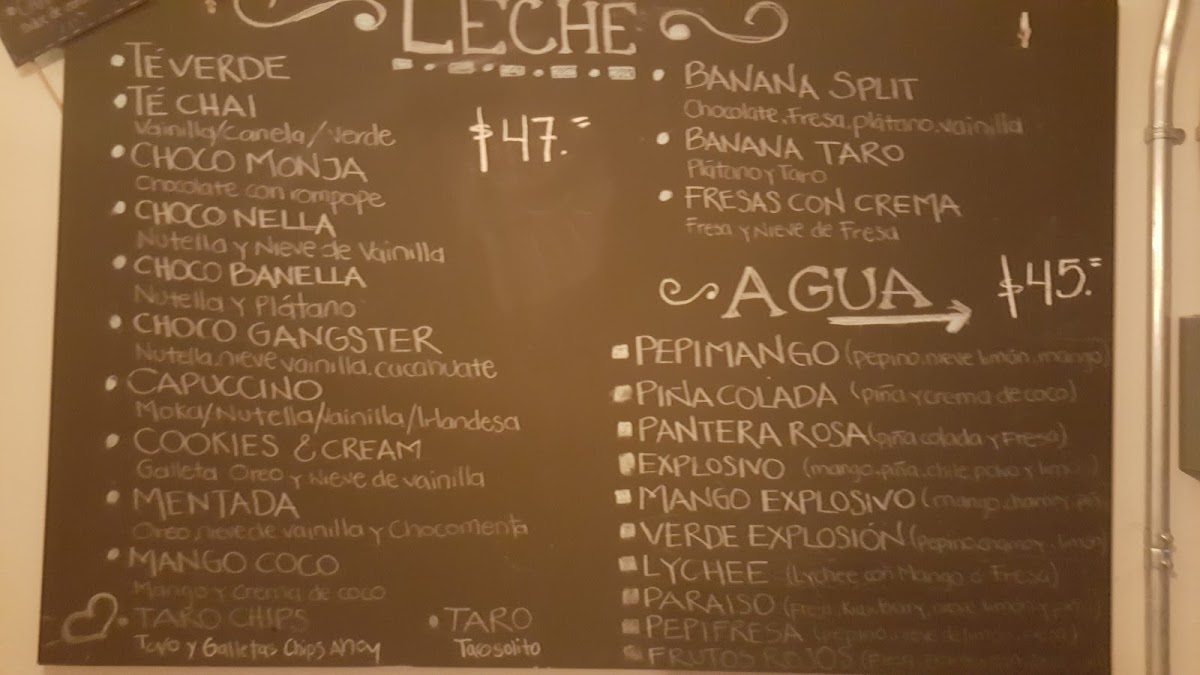 LECHE
• TÉ VERDE
• TÉ CHAI
Vainilla/Canela/Verde
$47.=
• CHOCO MONJA
Chocolate con rompope
• CHOCO NELLA
Nutella y Nieve de Vainilla
• CHOCO BANELLA
Nutella y Plátano
• CHOCO GANGSTER
Nutella.nieve vainilla.cacahuate
• CAPUCCINO
Moka/Nutella/Vainilla/Irlandesa
• COOKIES & CREAM
Galleta Oreo y Nieve de vainilla
• MENTADA
Oreo.nieve de vainilla y Chocomenta
• MANGO COCO
Mango y Crema de coco
• TARO CHIPS
Taro y Galletas Chips Ahoy
• TARO
Taro solito
• BANANA SPLIT
Chocolate.Fresa.plátano.vainilla
• BANANA TARO
Plátano y Taro
• FRESAS CON CREMA
Fresa y Nieve de Fresa
AGUA $45.=
PEPIMANGO (pepino.nieve limón.mango)
PIÑA COLADA (piña y crema de coco)
PANTERA ROSA (piña colada y Fresa)
EXPLOSIVO (mango.piña.chile polvo y
MANGO EXPLOSIVO (mango.chamoy
VERDE EXPLOSIÓN (pepino.chamoy.limón)
LYCHEE (Lychee con Mango o Fresa)
PARAISO
PEPIFRESA (pepino.nieve de limón.Fresa)
FRUTOS ROJOS